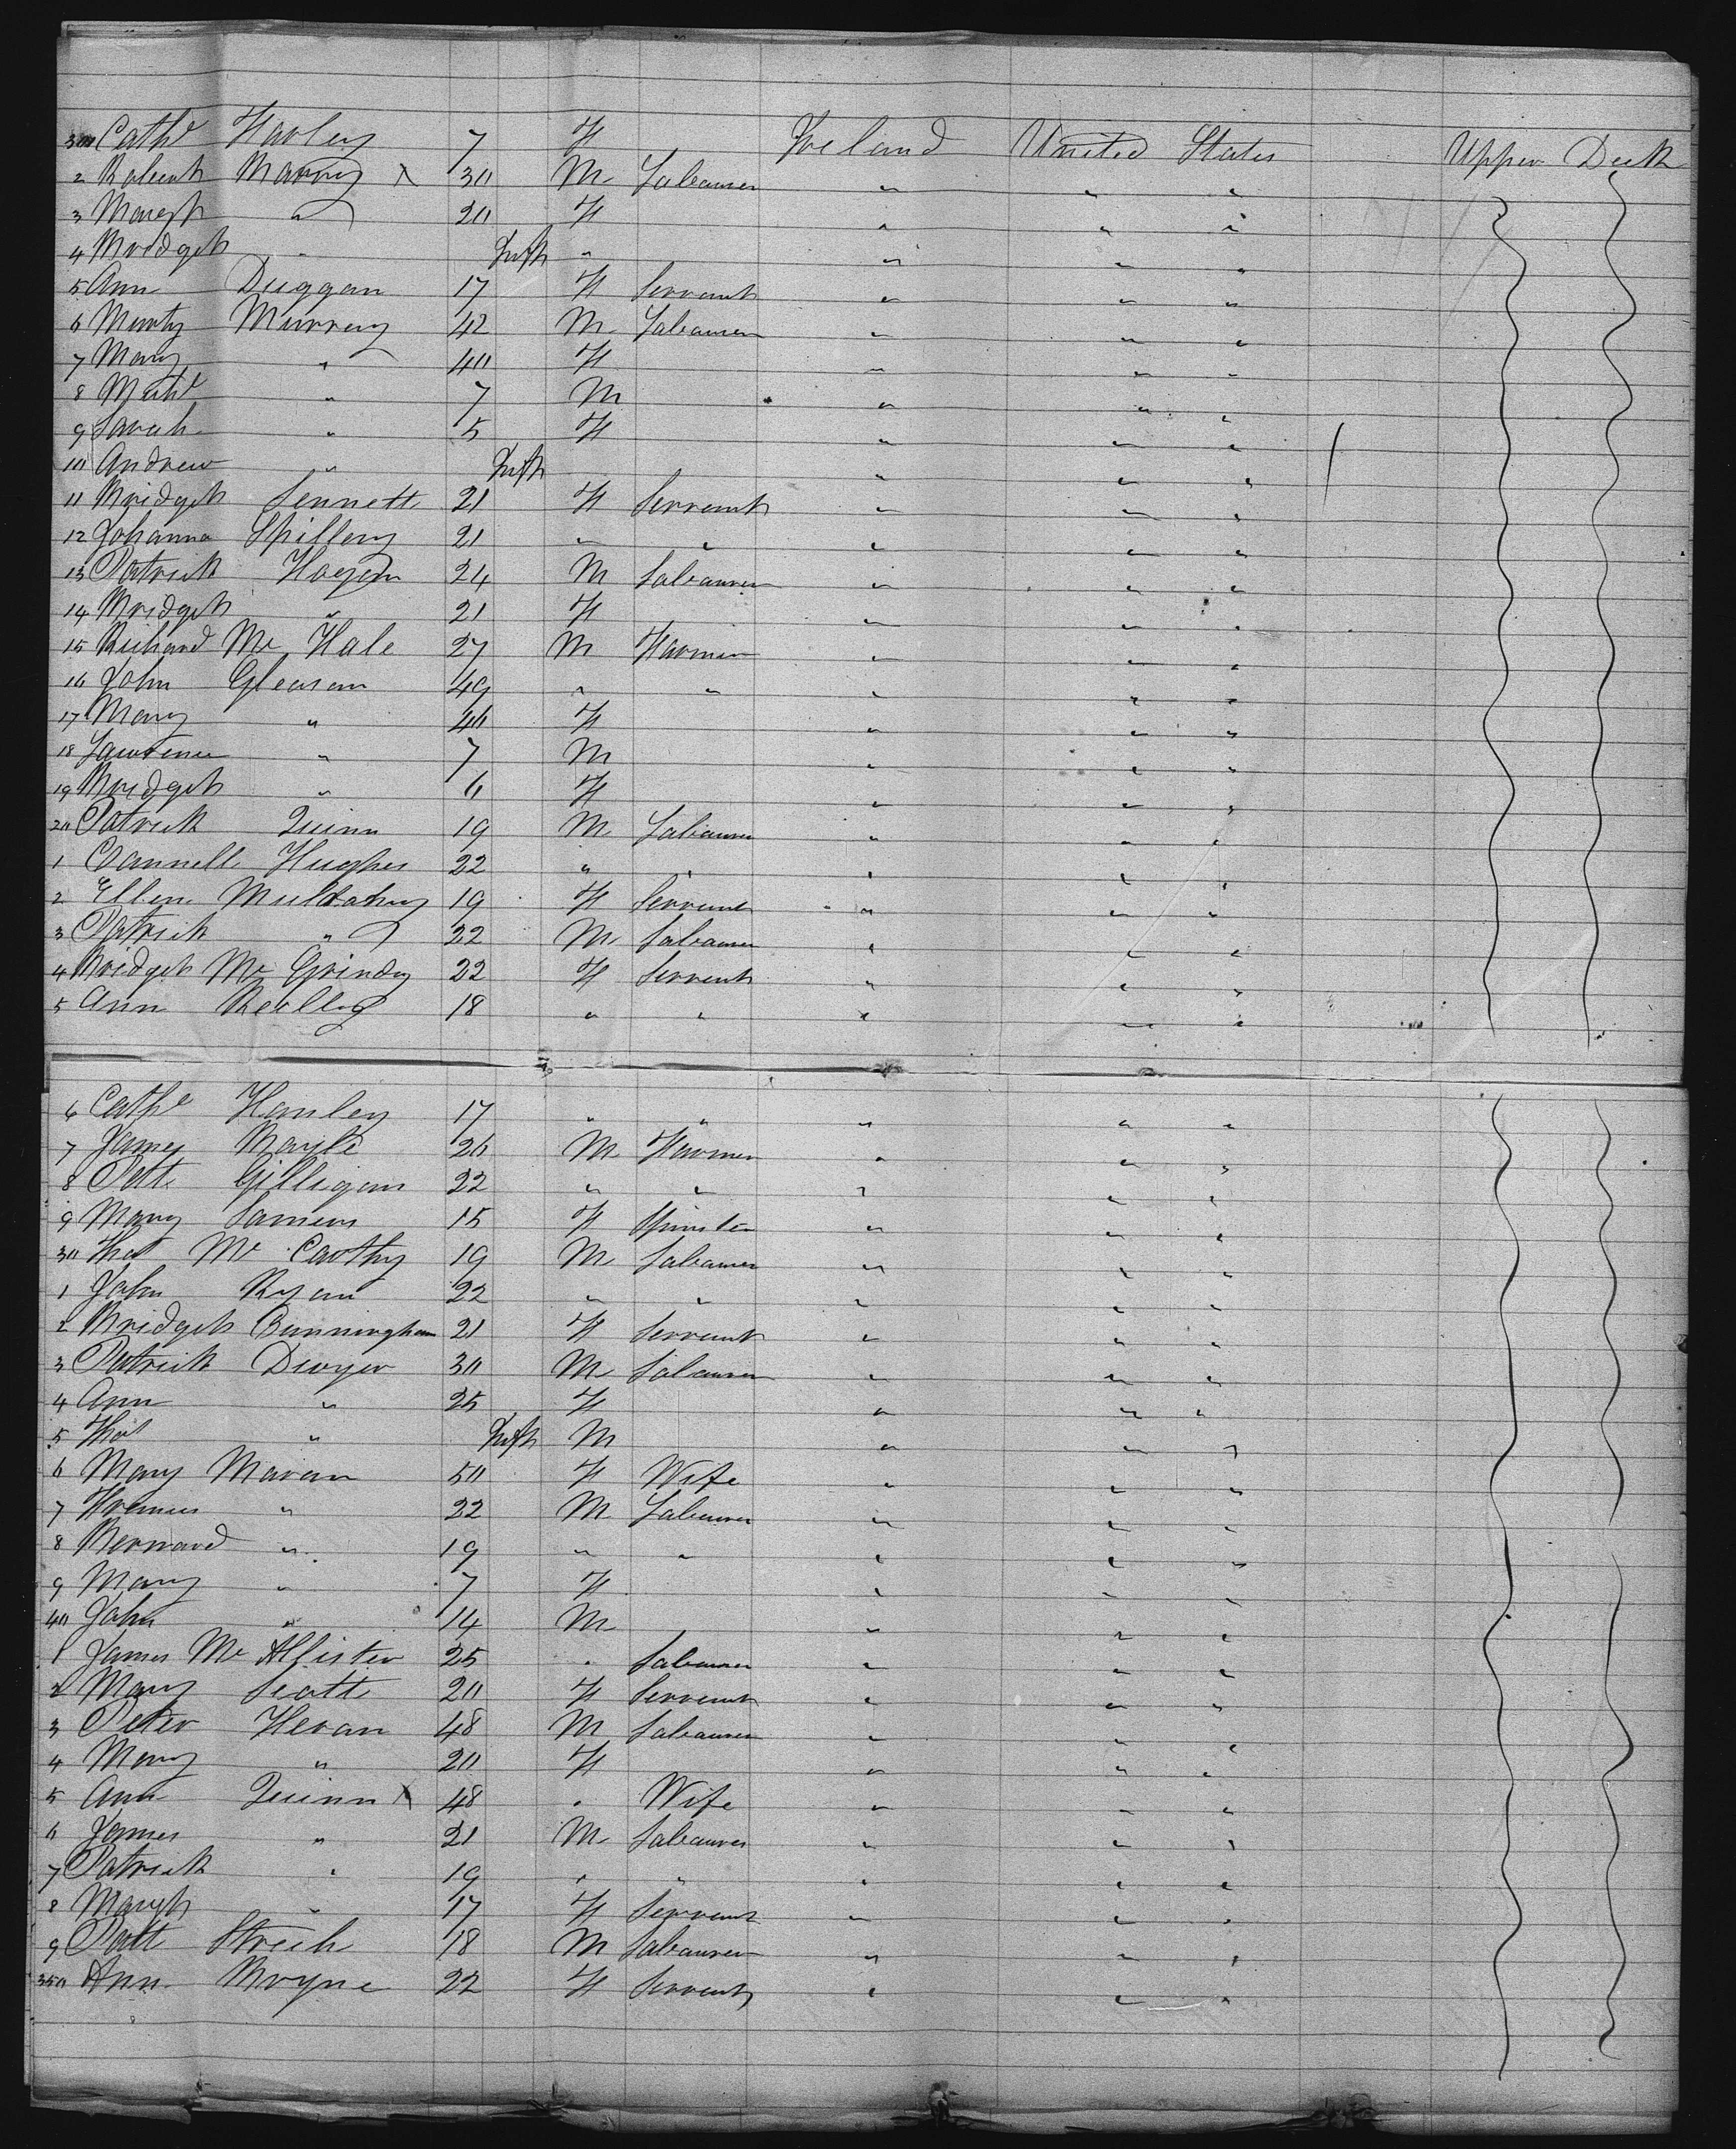 301 Cathe Harley 7 F Ireland United States Upper Deck
2 Robert Marry X 30 M Labourer " " "
3 Margt " 20 F " " "
4 Bridget " Inft " " " "
5 Ann Duggan 17 F Servant " " "
6 Marty Murray 42 M Labourer " " "
7 Mary " 40 F " " "
8 Michl " 7 M " " "
9 Sarah " 5 F " " "
10 Andrew " Inft " " "
11 Bridget Sennett 21 F Servant " " "
12 Johanna Spillery 21 " " " " "
13 Patrick Hogan 24 M Labourer " " "
14 Bridget " 21 F " " "
15 Richard Mc Hale 27 M Farmer " " "
16 John Gleason 49 " " " " "
17 Mary " 40 F " " "
18 Lawrence " 7 M " " "
19 Bridget " 6 F " " "
20 Patrick Quinn 19 M Labourer " " "
1 Connell Hughes 22 " " " " "
2 Ellen Mullahy 19 F Servant " " "
3 Patrick " 22 M Labourer " " "
4 Bridget Mc Grindy 22 F Servant " " "
5 Ann Reilly 18 " " " " "
6 Cathe Hanley 17 " " " " "
7 James Boyle 20 M Farmer " " "
8 Patt Gilligan 22 " " " " "
9 Mary 15 F Spinster " " "
30 Thos Mc Carthy 19 M Labourer " " "
1 John Ryan 22 " " " " "
2 Bridget Cunningham 21 F Servant " " "
3 Patrick Dwyer 30 M Labourer " " "
4 Ann " 25 F " " "
5 Thos " Inft M " " "
6 Mary Maran 50 F Wife " " "
7 Francis " 22 M Labourer " " "
8 Bernard " 19 " " " " "
9 Mary " 7 F " " "
40 John " 14 M " " "
1 James Mc Allister 25 " Labourer " " "
2 Mary Scott 20 F Servant " " "
3 Peter Heran 48 M Labourer " " "
4 Mary " 20 F " " "
5 Ann Quinn X 48 " Wife " " "
6 James " 21 M Labourer " " "
7 Patrick " 19 " " " " "
8 Margt " 17 F Servant " " "
9 Patt 18 M Labourer " " "
350 Ann Boyne 22 F Servant " " "